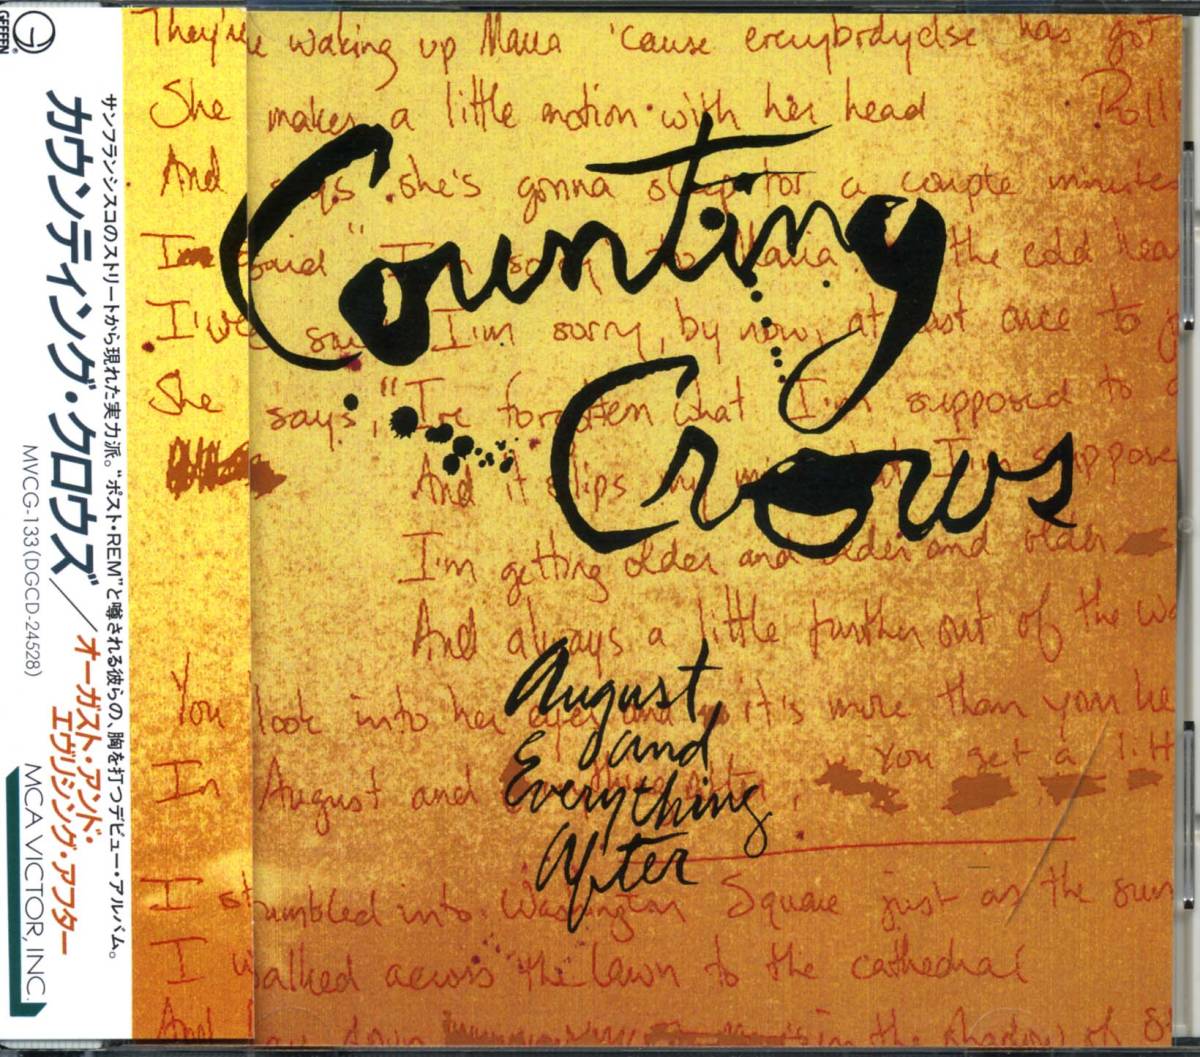 GEFFEN
カウンティング・クロウズ／オーガスト・アンド・エヴリシング・アフター
MVCG-133(DGCD-24528)
MCA VICTOR, INC.
サンフランシスコのストリートから現れた実力派。“ポスト・REM”と噂される彼らの、胸を打つデビュー・アルバム。
They're waking up Maria 'cause everybodyelse has got
She makes a little motion with her head
Roll
And says she's gonna sleep for a couple minutes
I said "I'm sorry to Maria the cold hear
I've said I'm sorry, by now, at least once to
She says, "I've forgotten what I'm supposed to
And it slips my mind what I'm suppose
I'm getting older and older and older
And always a little further out of the wa
You look into her eyes and it's more than your he
You get a litt
In August and
I stumbled into Washington Square just as the sun
I walked across the lawn to the cathedral
And lay down in the shadow of St
Counting
Crows
August
and
Everything
After